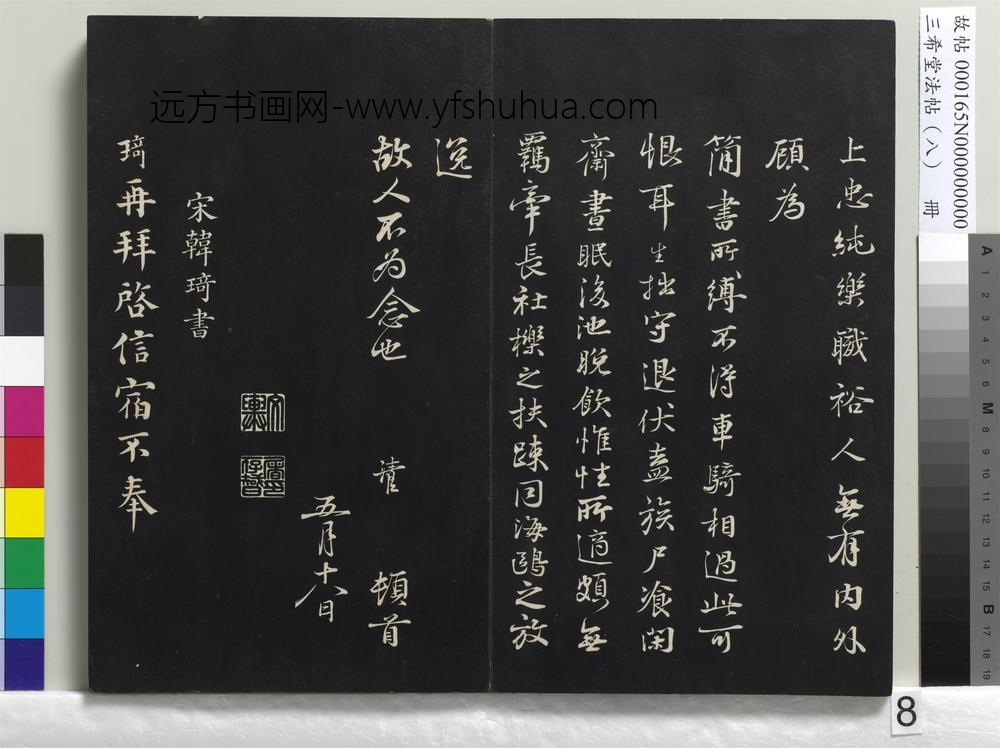 上忠純樂職裕人無有內外
顧為
簡書所縛不得車騎相過此可
恨耳生拙守退伏盍族尸飡閑
齋晝眠後池晚飲惟性所適頗無
羈牽長社櫟之扶疎同海鷗之放
逸
故人不为念也 頓首
五月十八日
宋韓琦書
琦再拜啓信宿不奉
远方书画网-www.yfshuhua.com
故帖 000165N000000000
三希堂法帖（八） 冊
A 1 2 3 4 5 6 M 8 9 10 11 12 13 14 15 B 17 18 19
8